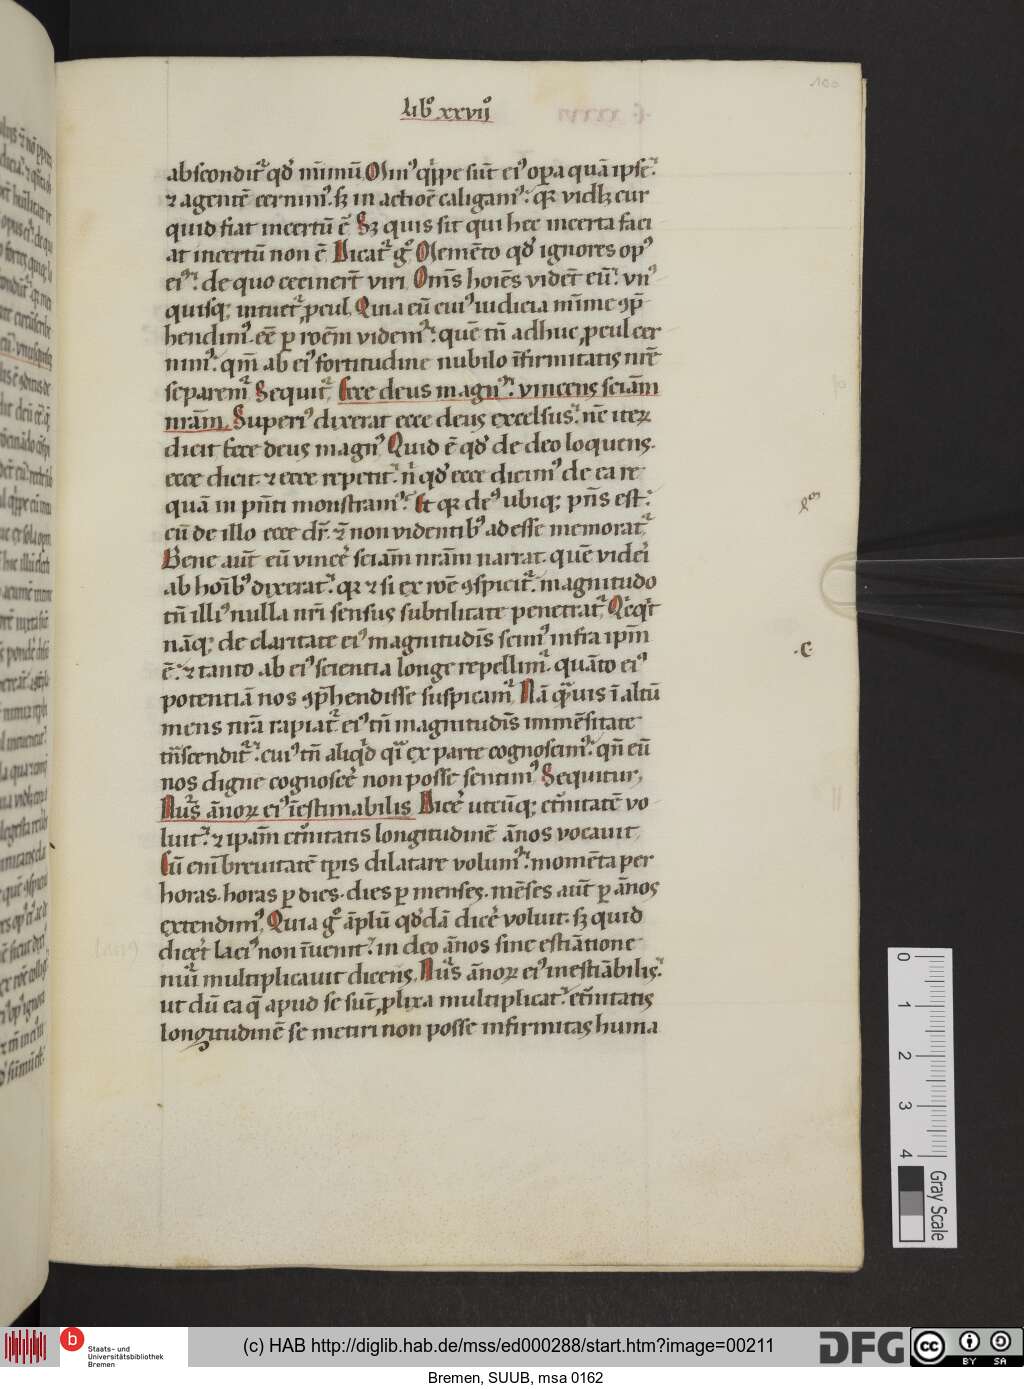 Lib⁹ xxvij⁹
abscondit᷑ qd̓ mīmū Oīm⁹ q̇ppe sūt ei⁹ oꝑa quā ipse᷑
⁊ agentē cernim⁹. sꝫ in actiōe caligam⁹: qꝛ videlꝫ cur
quid fiat incertū ē Sꝫ quis sit qui hec incerta faci
at incertū non ē Dicat᷑ gͦ Memēto qd̓ ignores op⁹
ei⁹: de quo cecinert̄ viri Om̄s hoīes vidēt eū: vn⁹
quisqꝫ intuet᷑ ꝓcul. Quia eū cui⁹ iudicia mīme ꝯp̄
hendim⁹. eē ꝑ rōem videm⁹: quē tn̄ adhuc ꝓcul cer
nim⁹: qm̄ ab ei⁹ fortitudine nubilo īfirmitatis nr̄e
separem᷑ Sequit᷑ Ecce deus magn⁹: vincens sciām
nr̄am. Superi⁹ dixerat ecce deus excelsus: nc̄ iteꝝ
dicit Ecce deus magn⁹ Quid ē qd̓ de deo loquens.
ecce dicit. ⁊ ecce repetit: n̍ qd̓ ecce dicim⁹ de ea re
quā in pn̄ti monstram⁹: Et qꝛ de⁹ ubiqꝫ pn̄s est:
cū de illo ecce dr̄. ⁊ non videntib⁹ adesse memorat᷑
Bene aut̄ eū vincē sciām nr̄am narrat. quē viderī
ab hoīb⁹ dixerat: qꝛ ⁊ si ex rōe ꝯspicit᷑. magnitudo
tn̄ illi⁹ nulla nr̄i sensus subtilitate penetrat᷑ Qc̓qd̓
nāqꝫ de claritate ei⁹ magnitudīs scim⁹ infra ip̄m
ē: ⁊ tanto ab ei⁹ scientia longe repellim᷑. quāto ei⁹
potentiā nos ꝯp̄hendisse suspicam᷑ Nā qͣuis ī altū
mens nr̄a rapiat᷑ ei⁹ tn̄ magnitudīs immēsitate
tn̄scendit᷑: cui⁹ tn̄ aliqd̓ qͣi ex parte cognoscim⁹: qn̄ eū
nos digne cognoscē non posse sentim⁹ Sequitur
Nūs ānoꝝ ei⁹ īestimabilis Dicē utcūqꝫ et̄nitatē vo
luit: ⁊ ipām et̄nitatis longitudinē ānos vocauit
Cū em̄ breuitatē tp̄is dilatare volum⁹: momēta per
horas. horas ꝑ dies. dies ꝑ menses. mēses aut̄ ꝑ ānos
extendim⁹ Quia gͦ āplū qd̓dā dicē voluit. sꝫ quid
dicēt laci⁹ non īuenit: in deo ānos sine estīatione
mūi multiplicauit dicens. Nūs ānoꝝ ei⁹ inestīabilis:
ut dū ea q̄ apud se sūt ꝓlixa multiplicat: et̄nitatis
longitudinē se metiri non posse infirmitas huma
.C
100
0 1 2 3 4
Gray Scale
b Staats- und
Universitätsbibliothek
Bremen
(c) HAB http://diglib.hab.de/mss/ed000288/start.htm?image=00211
DFG
cc BY SA
Bremen, SUUB, msa 0162